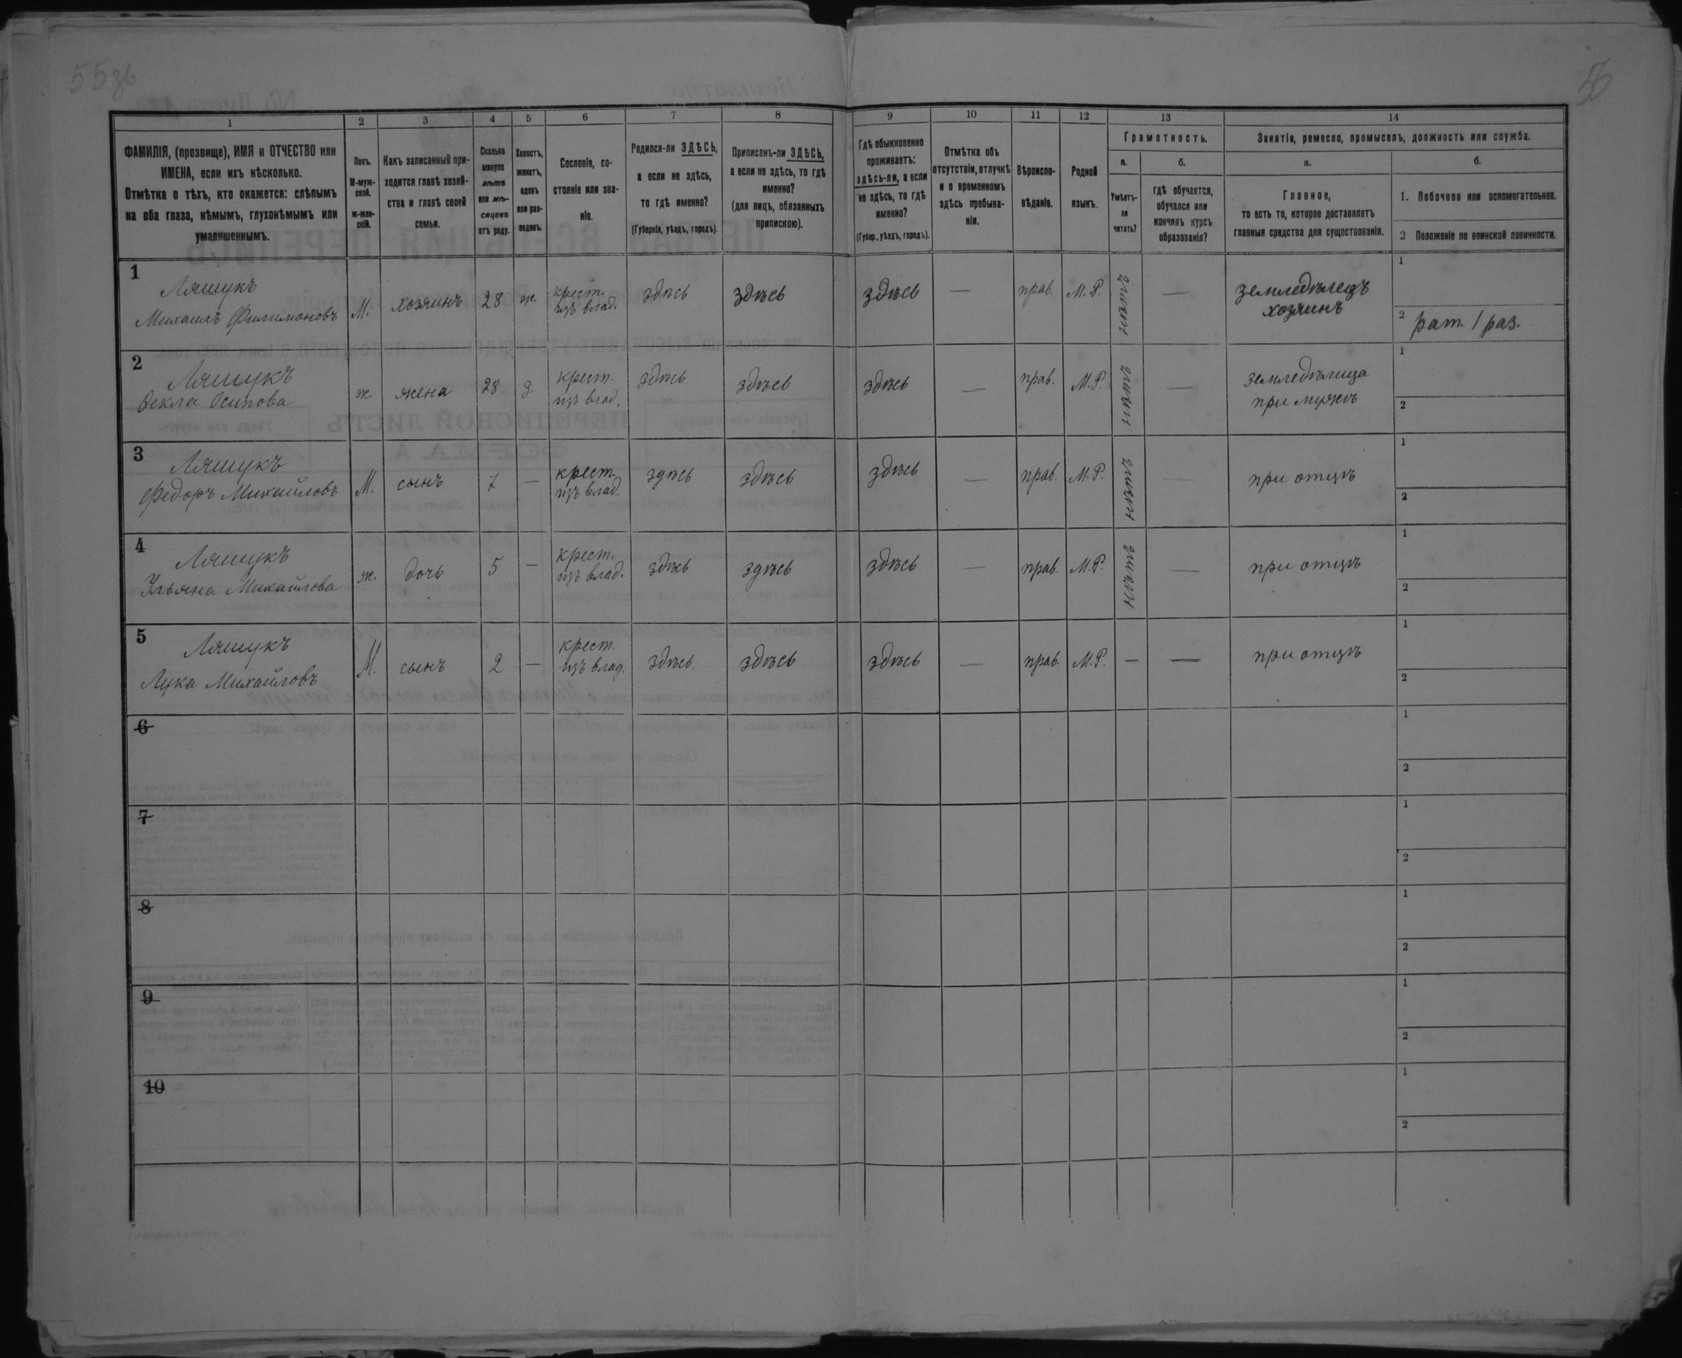 55зв
56
1
2
3
4
5
6
7
8
9
10
11
12
13
14
ФАМИЛІЯ, (прозвище), ИМЯ и ОТЧЕСТВО или
ИМЕНА, если ихъ нѣсколько.
Отмѣтка о тѣхъ, кто окажется: слѣпымъ
на оба глаза, нѣмымъ, глухонѣмымъ или
умалишеннымъ.
Полъ.
М-муж-
ской.
ж-жен-
скій.
Какъ записанный при-
ходится главѣ хозяй-
ства и главѣ своей
семьи.
Сколько
минуло
лѣтъ
или мѣ-
сяцевъ
отъ роду.
Холостъ,
женатъ,
вдовъ
или раз-
веденъ.
Сословіе, со-
стояніе или зва-
ніе.
Родился-ли ЗДѢСЬ,
а если не здѣсь,
то гдѣ именно?
(Губернія, уѣздъ, городъ).
Приписанъ-ли ЗДѢСЬ,
а если не здѣсь, то гдѣ
именно?
(для лицъ, обязанныхъ
припискою).
Гдѣ обыкновенно
проживаетъ:
здѣсь-ли, а если
не здѣсь, то гдѣ
именно?
(Губер., уѣздъ, городъ).
Отмѣтка объ
отсутствіи, отлучкѣ
и о временномъ
здѣсь пребыва-
ніи.
Вѣроиспо-
вѣданіе.
Родной
языкъ.
Грамотность.
а.
Умѣетъ-
ли
читать?
б.
Гдѣ обучается,
обучался или
кончилъ курсъ
образованія?
Занятія, ремесло, промыселъ, должность или служба.
а.
Главное,
то есть то, которое доставляетъ
главныя средства для существованія.
б.
1. Побочное или вспомогательное.
2 Положеніе по воинской повинности.
1
Ляшукъ
Михаилъ Филимоновъ
М.
хозяинъ
28
ж.
крест.
изъ влад.
здѣсь
здѣсь
здѣсь
—
прав.
М.Р.
нѣтъ
—
земледѣлецъ
хозяинъ
1
2 рат. 1 раз.
2
Ляшукъ
Өекла Осипова
ж.
жена
28
з.
крест.
изъ влад.
здѣсь
здѣсь
здѣсь
—
прав.
М.Р.
нѣтъ
—
земледѣлица
при мужѣ
1
2
3
Ляшукъ
Федоръ Михайловъ
М.
сынъ
7
—
крест.
изъ влад.
здѣсь
здѣсь
здѣсь
—
прав.
М.Р.
нѣтъ
—
при отцѣ
1
2
4
Ляшукъ
Ульяна Михайлова
ж.
дочь
5
—
крест.
изъ влад.
здѣсь
здѣсь
здѣсь
—
прав.
М.Р.
нѣтъ
—
при отцѣ
1
2
5
Ляшукъ
Лука Михайловъ
М.
сынъ
2
—
крест.
изъ влад.
здѣсь
здѣсь
здѣсь
—
прав.
М.Р.
—
—
при отцѣ
1
2
6
1
2
7
1
2
8
1
2
9
1
2
10
1
2